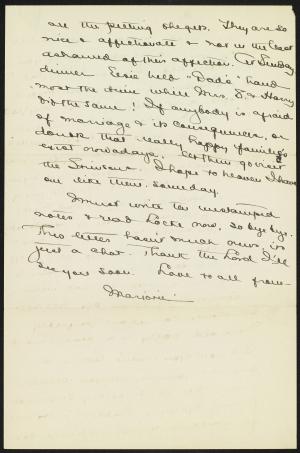 are the petting They are so
nice & affectionate & not in the least
ashamed of their affection. At Sunday
dinner Elsie held "Dad's" hand
most the time while Mrs. S. & Harry
did the same! If anybody is afraid
of marriage & its consequences, or
doubts that really happy families
exist nowadays, let them go visit
the I hope to heaven I have
one like them, someday.
I must write ten unstamped
notes & read Locke now, so bye bye.
This letter hasn't much news, it's
just a chat. Thank the Lord I'll
see you soon. Love to all from
Marjorie